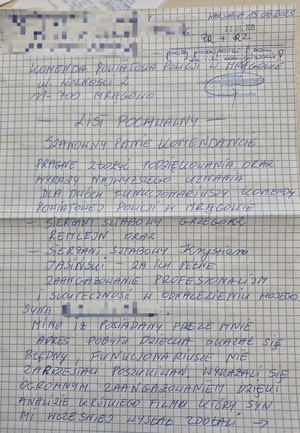 WARSZAWA 19.06.2025
KOMENDA POWIATOWA POLICJI W MRĄGOWIE
ul. WOLNOŚCI 2
11-700 MRĄGOWO
— LIST POCHWALNY —
SZANOWNY PANIE KOMENDANCIE
PRAGNĘ ZŁOŻYĆ PODZIĘKOWANIA ORAZ
WYRAZY NAJWYŻSZEGO UZNANIA
DLA DWÓCH FUNKCJONARIUSZY KOMENDY
POWIATOWEJ POLICJI W MRĄGOWIE
— SIERŻANT SZTABOWY GRZEGORZ
REMLEJN ORAZ
— SIERŻANT SZTABOWY Krystian
JASIŃSKI - ZA ICH PEŁNE
ZAANGAŻOWANIE PROFESJONALIZM
I SKUTECZNOŚĆ W ODNALEZIENIU MOJEGO
SYNA
MIMO IŻ POSIADANY PRZEZE MNIE
ADRES POBYTU DZIECKA OKAZAŁ SIĘ
BŁĘDNY, FUNKCJONARIUSZE NIE
ZAPRZESTALI POSZUKIWAŃ, WYKAZALI SIĘ
OGROMNYM ZAANGAŻOWANIEM DZIĘKI
ANALIZIE KRÓTKIEGO FILMU KTÓRY SYN
MI WCZEŚNIEJ WYSŁAŁ ZDOŁALI →